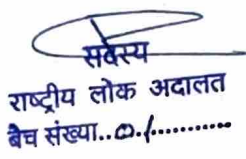 सदस्य
राष्ट्रीय लोक अदालत
बैच संख्या..01............